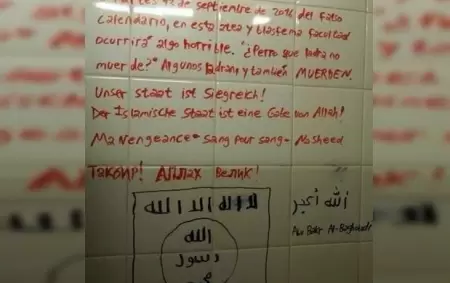 de septiembre de 2016 del falso
calendario, en esta atea y blasfema facultad
ocurrirá algo horrible. "¿Perro que ladra no
muerde?" Algunos ladran y también MUERDEN.
Unser Staat ist Siegreich!
Der Islamische Staat ist eine Gabe von Allah!
Ma Vengeance - sang pour sang - Nasheed
Такбир! Аллах велик!
لا اله الا الله
الله
رسول
الله أكبر
Abu Bakr Al-Baghdadi